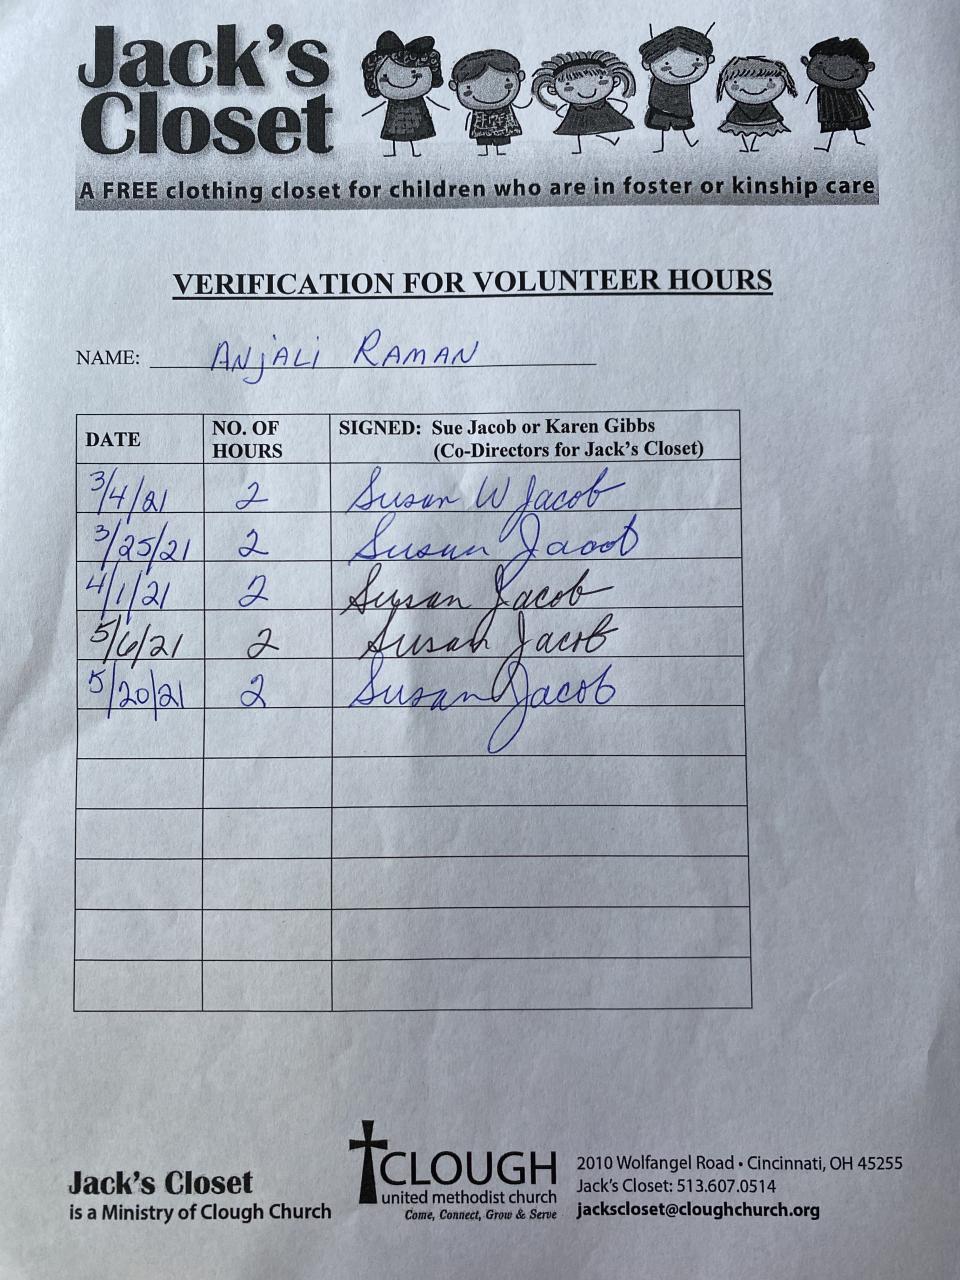 Jack's
Closet
A FREE clothing closet for children who are in foster or kinship care
VERIFICATION FOR VOLUNTEER HOURS
NAME: ANJALI RAMAN
DATE NO. OF HOURS SIGNED: Sue Jacob or Karen Gibbs
(Co-Directors for Jack's Closet)
3/4/21 2 Susan W Jacob
3/25/21 2 Susan Jacob
4/1/21 2 Susan Jacob
5/6/21 2 Susan Jacob
5/20/21 2 Susan Jacob
Jack's Closet
is a Ministry of Clough Church
CLOUGH
united methodist church
Come, Connect, Grow & Serve
2010 Wolfangel Road • Cincinnati, OH 45255
Jack's Closet: 513.607.0514
jackscloset@cloughchurch.org